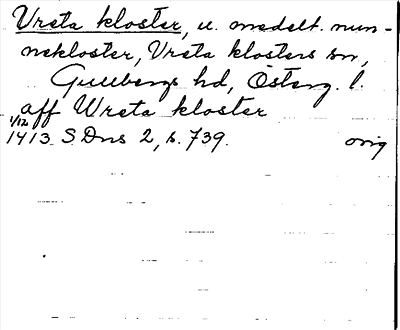 Vreta kloster, u. medelt. nun-
nekloster, Vreta klosters sn,
Gullbergs hd, Österg. l.
aff Wreta kloster
1/12
1413 S Dns 2, s. 739. orig